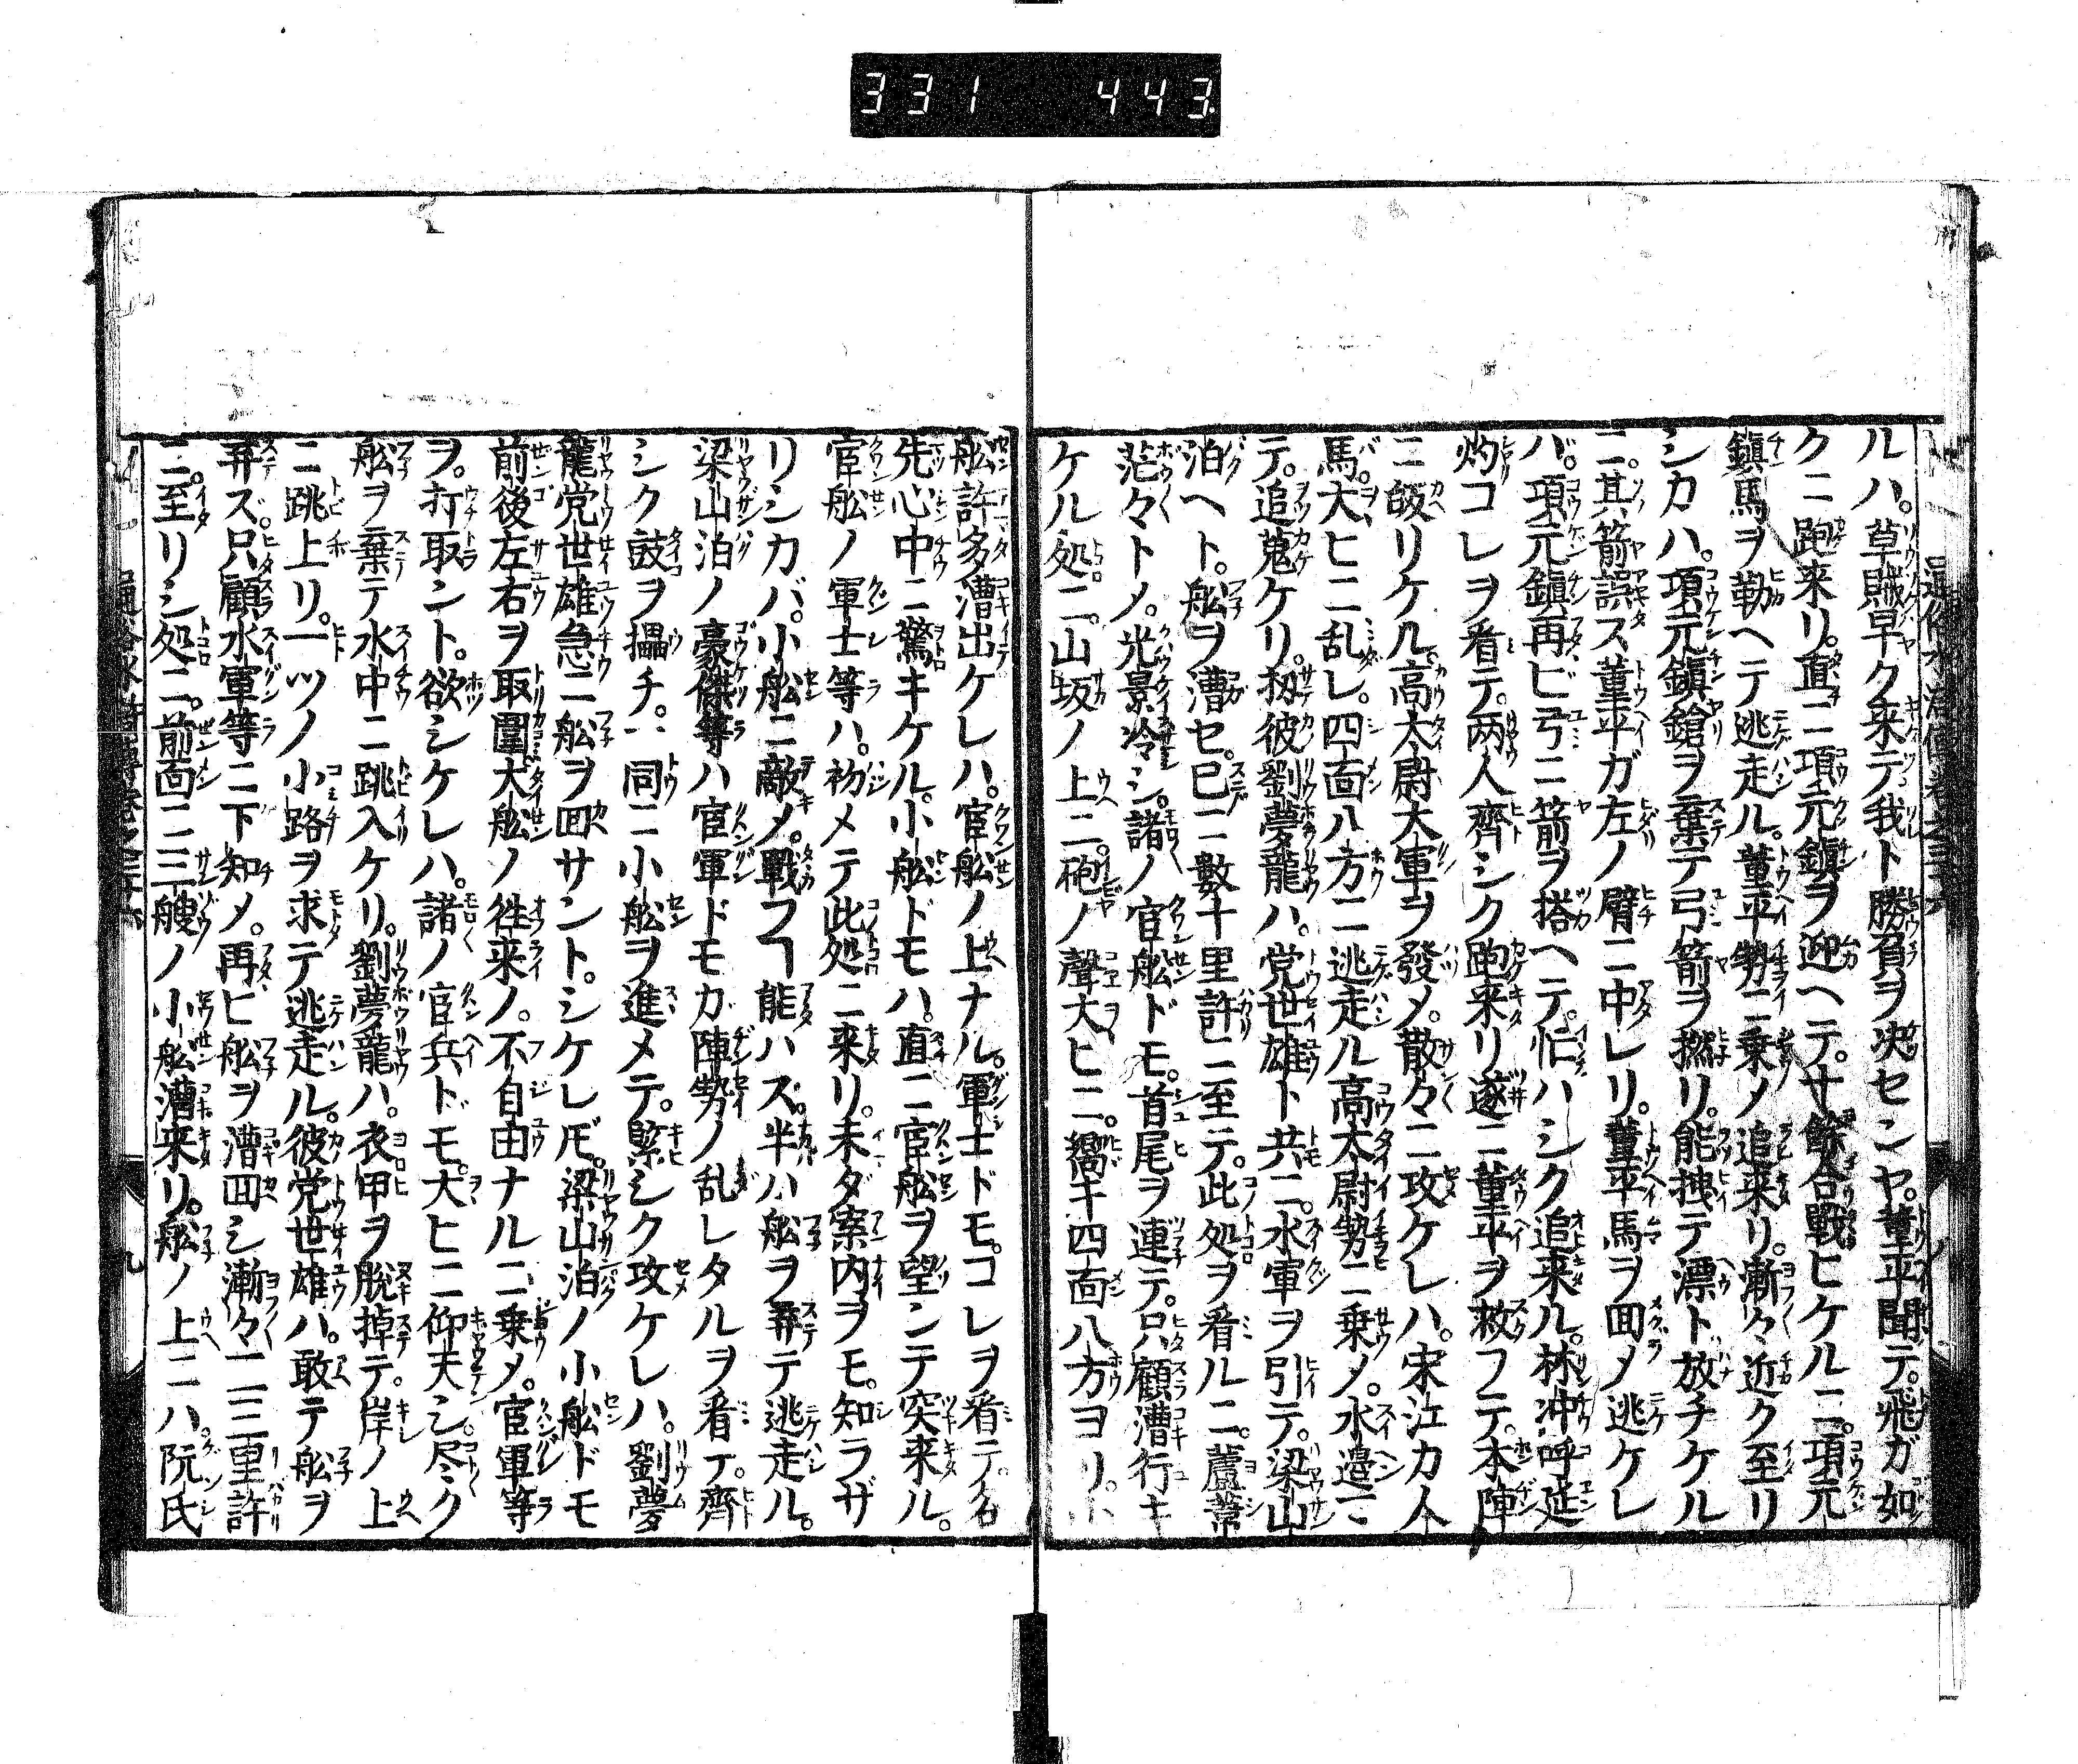 331 443
ルハ。草賊早ク来テ我ト勝負ヲ决センヤ。董平聞テ。飛ガ如
クニ跑来リ。直ニ項元鎭ヲ迎ヘテ。十餘合戰ヒケルニ。項元
鎭馬ヲ勒ヘテ逃走ル。董平勢ニ乗メ追来リ。漸々近ク至リ
シカハ。項元鎭鎗ヲ棄テ弓箭ヲ撚リ。能拽テ漂ト放チケル
ニ。其箭誤ス董平ガ左ノ臂ニ中レリ。董平馬ヲ回メ逃ケレ
バ。項元鎭再ビ弓ニ箭ヲ搭ヘテ。忙ハシク追来ル。林冲呼延
灼コレヲ看テ。两人齊シク跑来リ遂ニ董平ヲ救フテ。本陣
ニ皈リケル。高太尉大軍ヲ發メ。散々ニ攻ケレハ。宋江カ人
馬。大ヒニ乱レ。四面八方ニ逃走ル高太尉勢ニ乗メ。水邉ニ
テ。追蒐ケリ。扨彼劉夢龍ハ。党世雄ト共ニ。水軍ヲ引テ。梁山
泊ヘト。舩ヲ漕セ。已ニ數十里許ニ至テ。此処ヲ看ルニ。蘆葦
茫々トメ。光景冷シ。諸ノ官舩ドモ。首尾ヲ連テ。只顧漕行キ
ケル処ニ。山坂ノ上ニ。砲ノ聲大ヒニ。響キ四面八方ヨリ。小
舩許多漕出ケレハ。官舩ノ上ナル。軍士ドモ。コレヲ看テ。各
先心中ニ驚キケル。小舩ドモハ。直ニ官舩ヲ望ンテ突来ル。
官舩ノ軍士等ハ。初メテ此処ニ来リ。未ダ案内ヲモ。知ラザ
リシカバ。小舩ニ敵メ。戰フヿ能ハズ。半ハ舩ヲ弃テ逃走ル。
梁山泊ノ豪傑等ハ官軍ドモカ陣勢ノ乱レタルヲ看テ。齊
シク鼓ヲ擂チ。同ニ小舩ヲ進メテ。緊シク攻ケレハ。劉夢
龍党世雄急ニ舩ヲ回サント。シケレ𪜈。梁山泊ノ小舩ドモ
前後左右ヲ取圍大舩ノ徃来ノ。不自由ナルニ乗メ。官軍等
ヲ。打取ント。欲シケレハ。諸ノ官兵ドモ。大ヒニ仰天シ。尽ク
舩ヲ棄テ水中ニ跳入ケリ。劉夢龍ハ。衣甲ヲ脱掉テ。岸ノ上
ニ跳上リ。一ツノ小路ヲ求テ逃走ル。彼党世雄ハ。敢テ舩ヲ
弃ズ。只顧水軍等ニ下知メ。再ヒ舩ヲ漕回シ漸々二三里許
ニ。至リシ処ニ。前面ニ三艘ノ小舩漕来リ。舩ノ上ニハ。阮氏
九